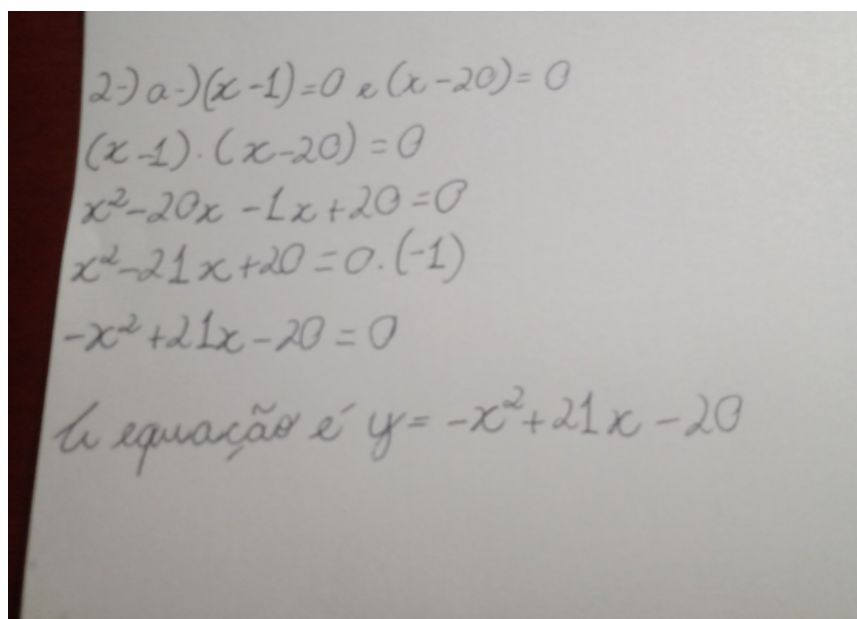 2-) a-) (x-1)=0 e (x-20)=0
(x-1).(x-20)=0
x²-20x-1x+20=0
x²-21x+20=0.(-1)
-x²+21x-20=0
A equação é y=-x²+21x-20